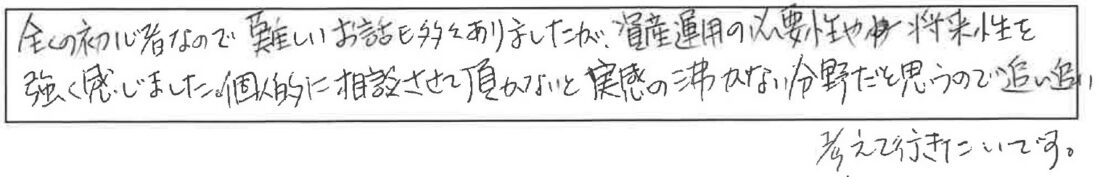 全くの初心者なので難しいお話も多々ありましたが、資産運用の必要性や将来性を
強く感じました。個人的に相談させて頂かないと実感の沸かない分野だと思うので追い追い
考えて行きたいです。